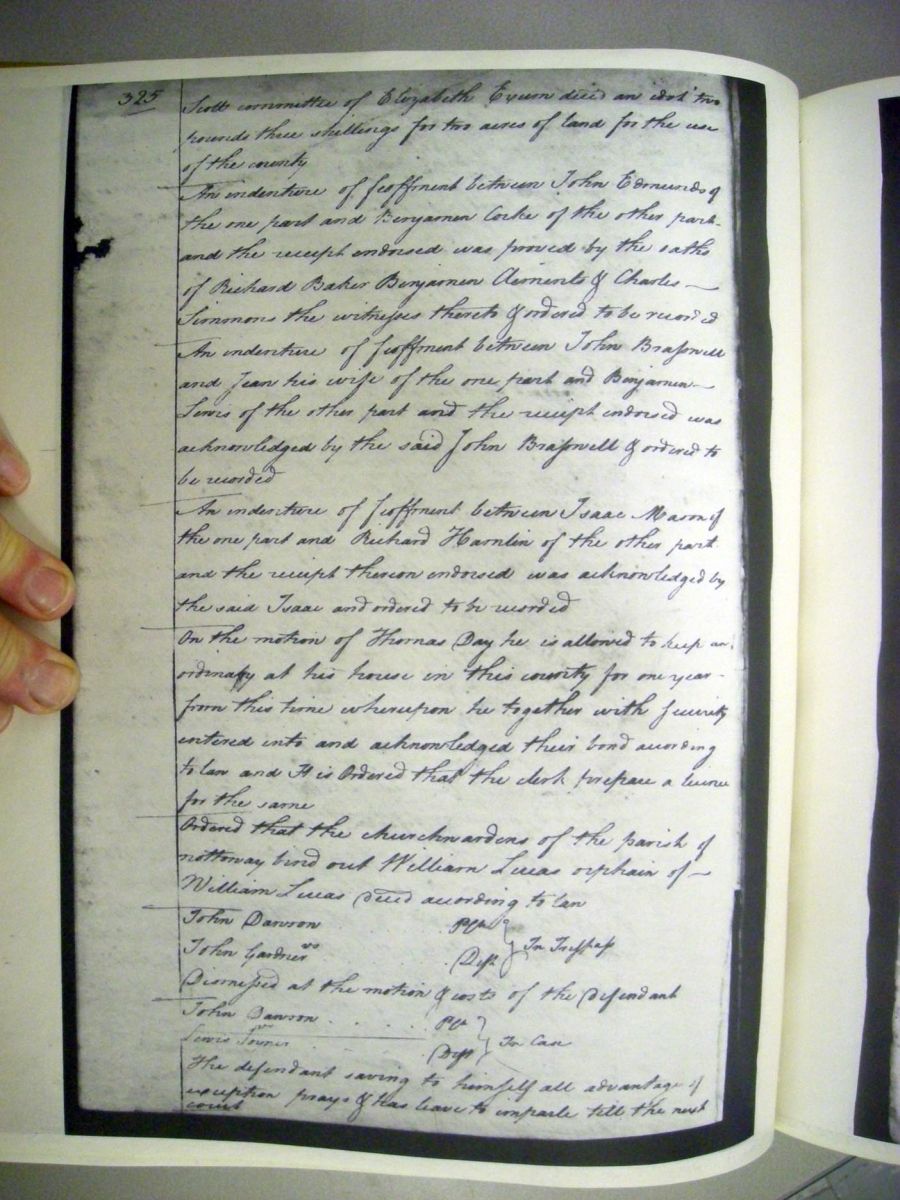 325
Scott committee of Elizabeth Exum deced an idot two
pounds three shillings for two acres of land for the use
of the county
An indenture of feoffment between John Edmunds of
the one part and Benjamen Cocke of the other part
and the receipt endorsed was proved by the oaths
of Richard Baker Benjamen Clements & Charles
Simmons the witnesses thereto & ordered to be recor'd
An indenture of feoffment between John Brasswell
and Jean his wife of the one part and Benjamen
Lewis of the other part and the receipt endorsed was
acknowledged by the said John Brasswell & ordered to
be recorded
An indenture of feoffment between Isaac Mason of
the one part and Richard Hamlin of the other part
and the receipt thereon endorsed was acknowledged by
the said Isaac and ordered to be recorded
On the motion of Thomas Day he is allowed to keep an
ordinary at his house in this county for one year
from this time whereupon he together with security
entered into and acknowledged their bond according
to law and It is Ordered that the clerk prepare a licence
for the same
Ordered that the churchwardens of the parish of
nottoway bind out William Lucas orphain of
William Lucas deced according to law
John Dawson Plt
vs In Tresspass
John Gardner Deft
Dismissed at the motion & costs of the Defendant
John Dawson Plt
vs In Case
Lewis Deft
The defendant saving to himself all advantage of
exception prays & has leave to imparle till the next
court